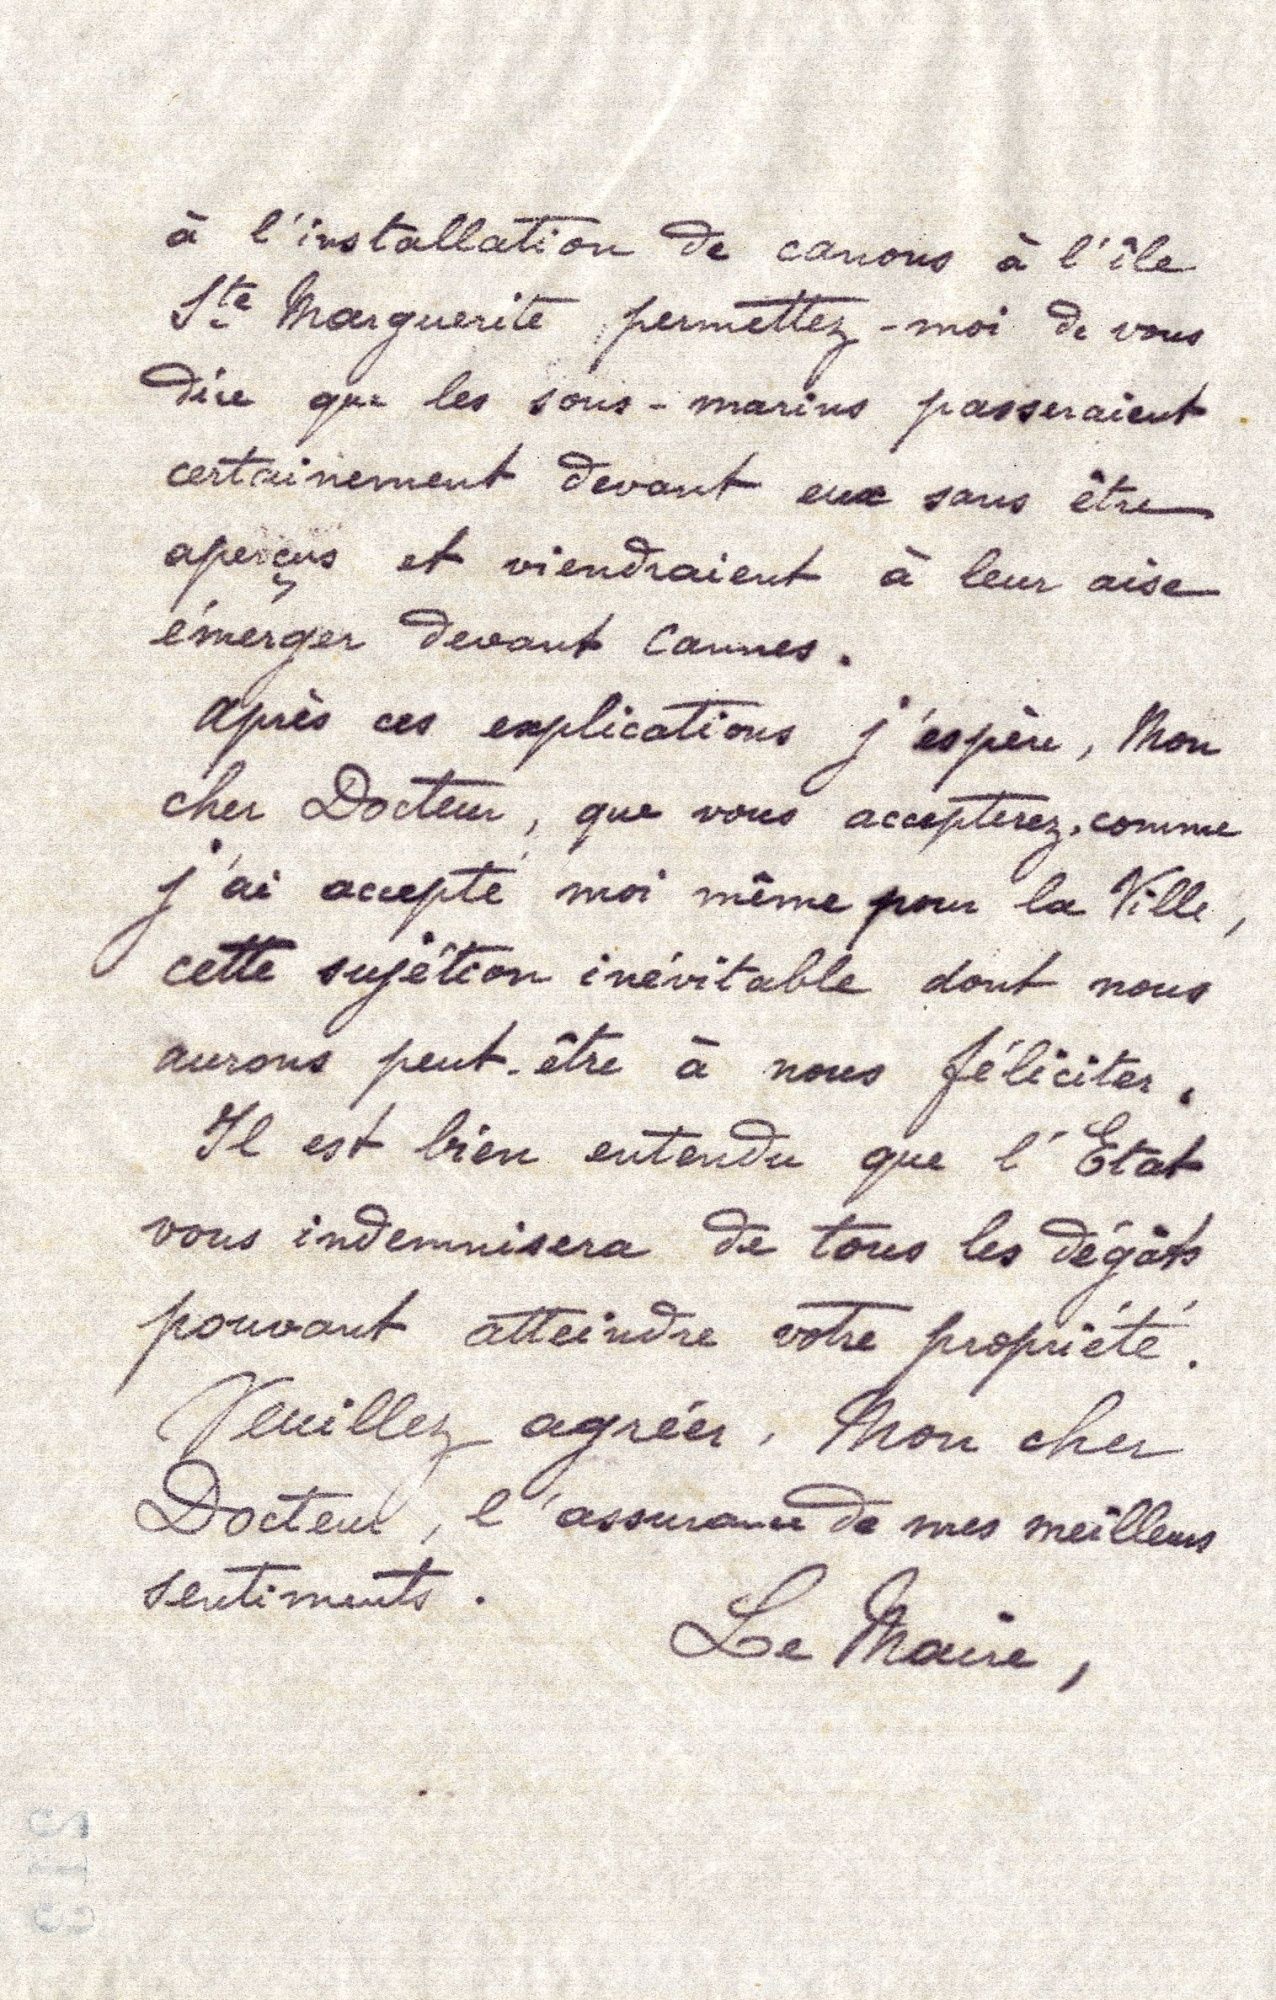 à l'installation de canons à l'île
Ste Marguerite permettez-moi de vous
dire que les sous-marins passeraient
certainement devant eux sans être
aperçus et viendraient à leur aise
émerger devant Cannes.
Après ces explications j'espère, Mon
cher Docteur, que vous accepterez, comme
j'ai accepté moi même pour la Ville,
cette sujétion inévitable dont nous
aurons peut-être à nous féliciter.
Il est bien entendu que l'Etat
vous indemnisera de tous les dégâts
pouvant atteindre votre propriété.
Veuillez agréer, Mon cher
Docteur, l'assurance de mes meilleurs
sentiments.
Le Maire,
213